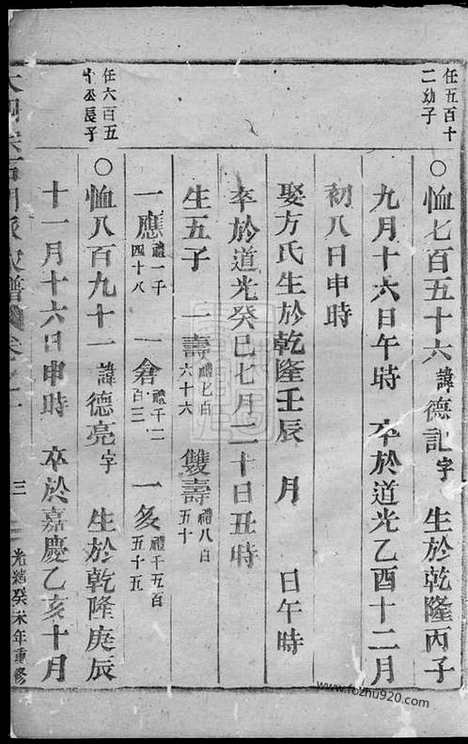 任五百十
二幼子
○恤七百五十六諱德記字 生於乾隆丙子
九月十六日午時 卒於道光乙酉十二月
初八日申時
娶方氏生於乾隆壬辰 月 日午時
卒於道光癸巳七月二十日丑時
生五子 一壽禮七百六十六 雙壽禮八百五十
一應禮一千四十八 一倉禮千二百三 一多禮千五百五十五
任六百五
長子
○恤八百九十一諱德亮字 生於乾隆庚辰
十一月十六日申時 卒於嘉慶乙亥十月
三
光緒癸未年重修
www.fozhu920.com